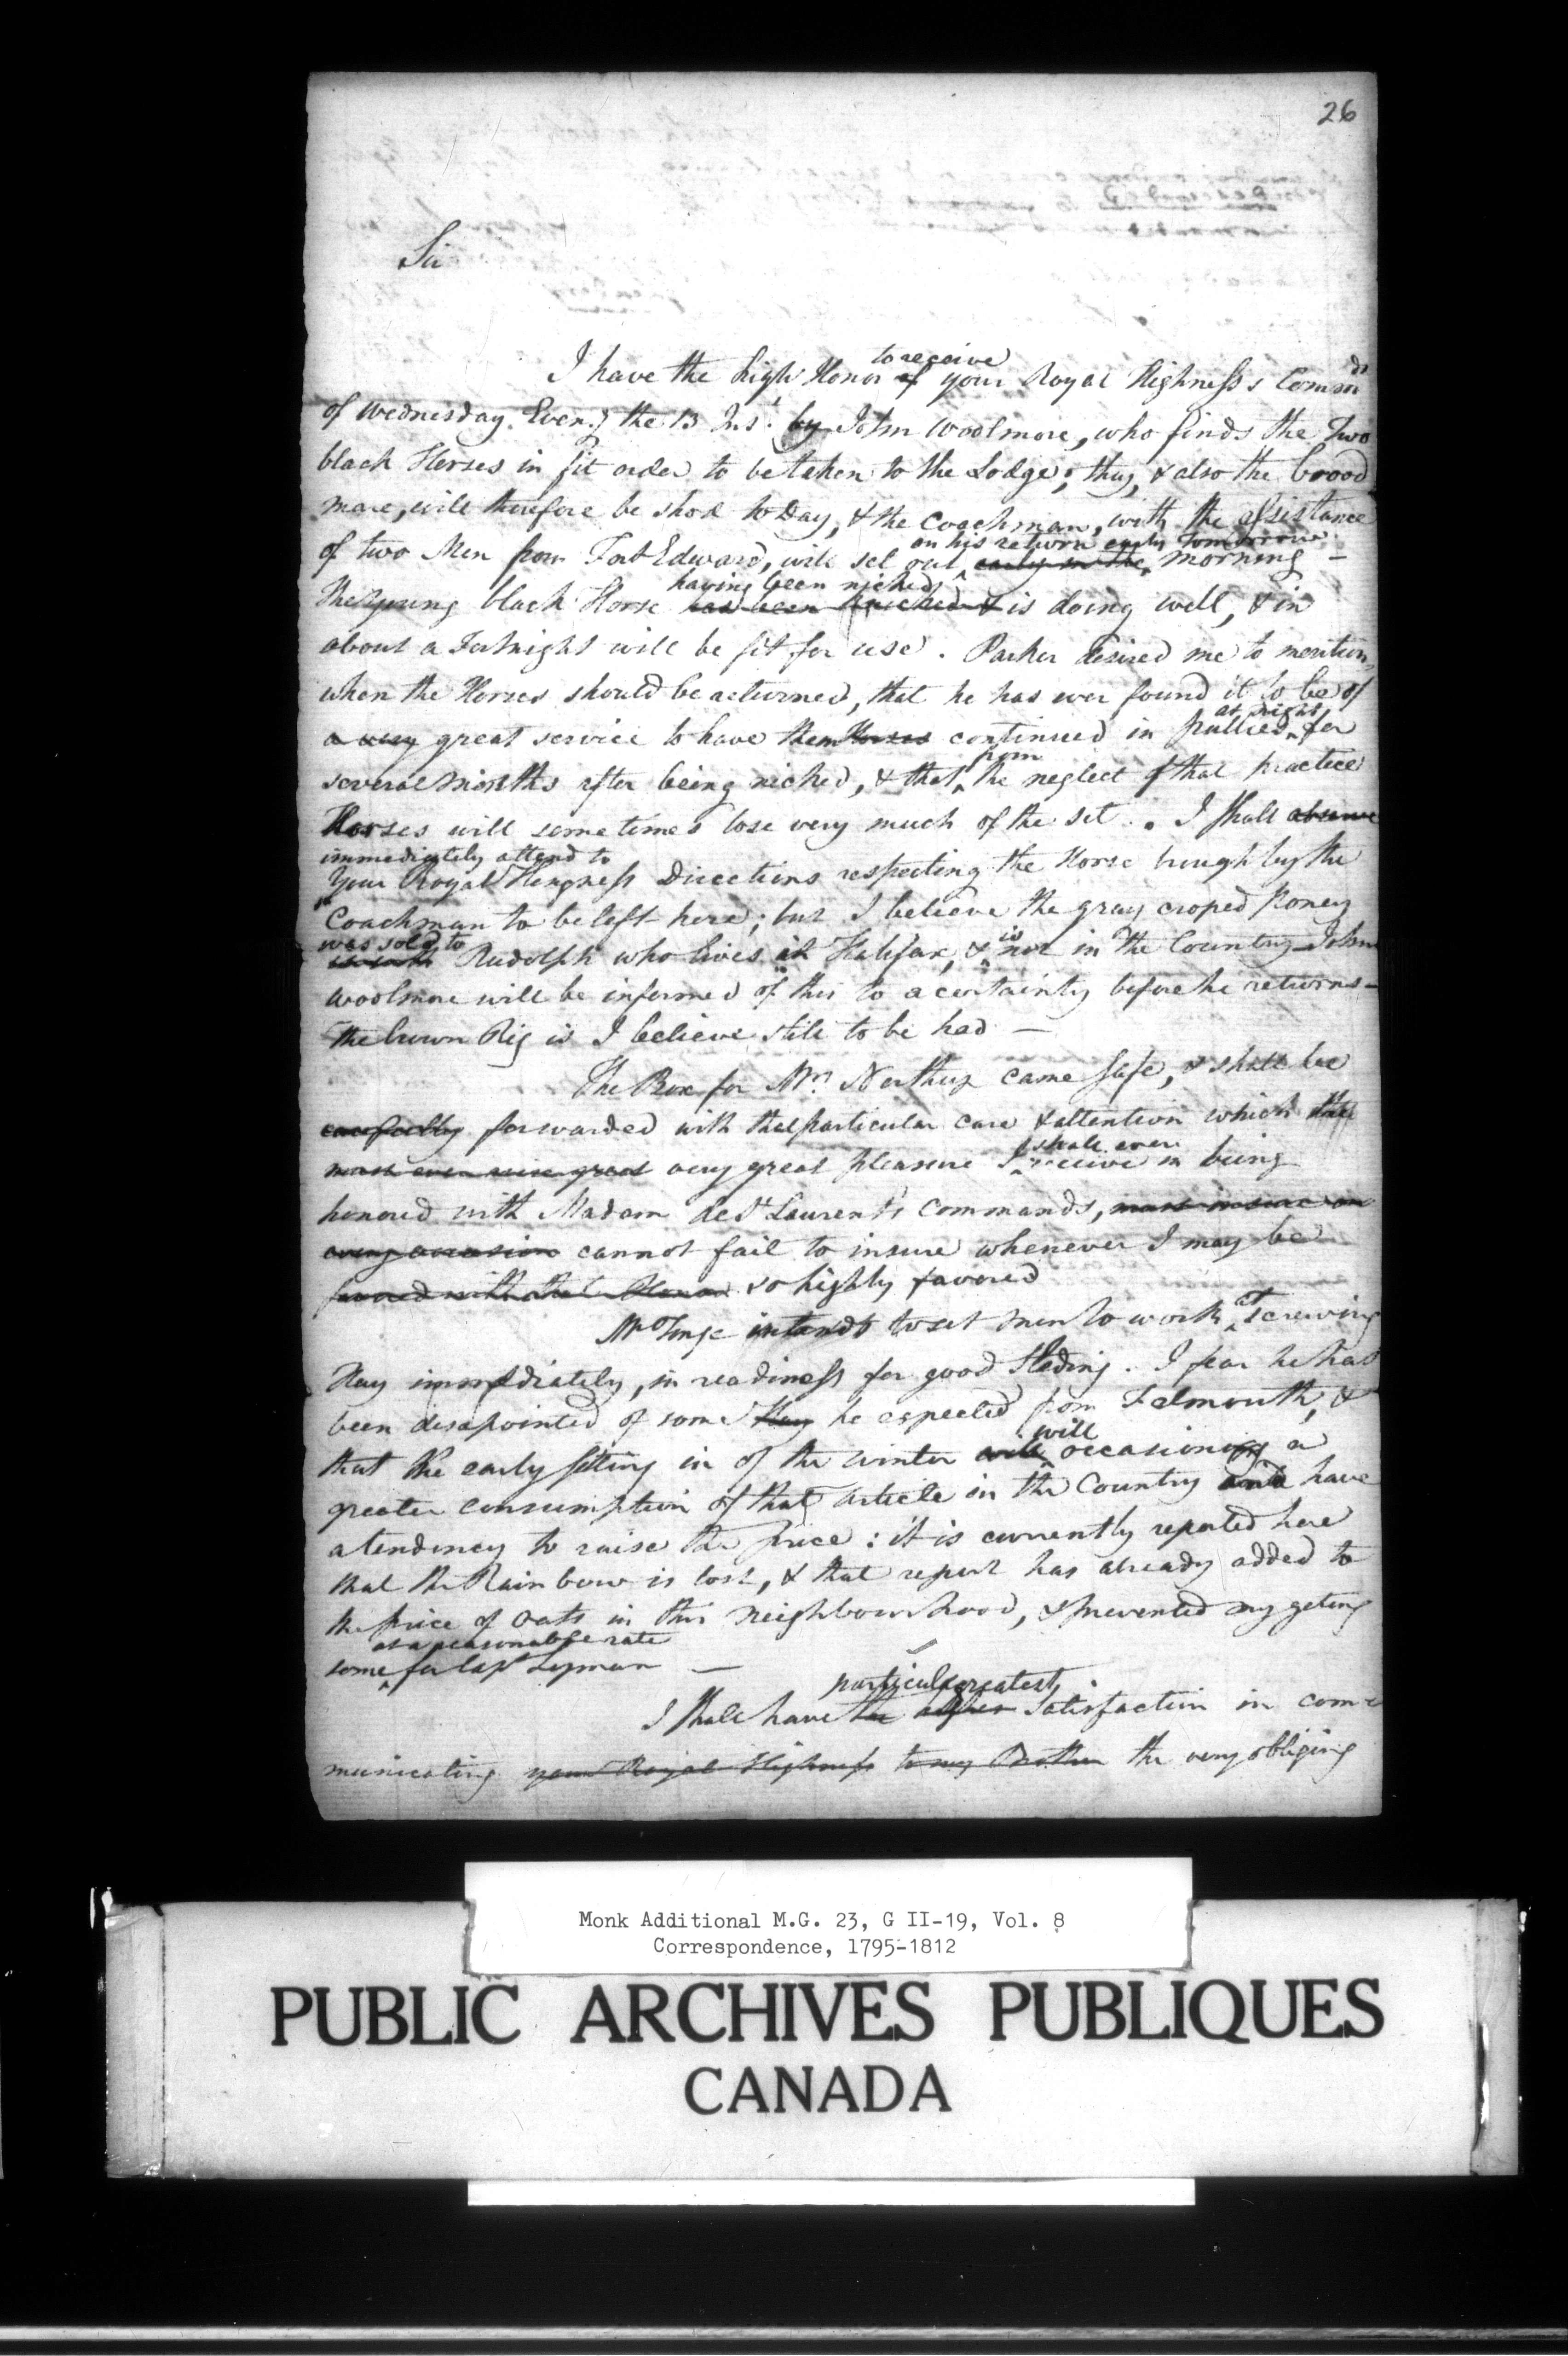 26
Sir
to receive
I have the high Honor of your Royal Highness's Commds
of Wednesday Eveng the 13 Inst. by John Woolmore, who finds the Two
black Horses in fit order to be taken to the Lodge; they, & also the brood
mare, will therefore be shod to Day, & the Coachman, with the assistance
on his return early tomorrow
of two Men from Fort Edward, will set out early in the morning —
having been niched
The young black Horse has been niched & is doing well, & in
about a Fortnight will be fit for use. Parker desired me to mention,
when the Horses should be returned, that he has ever found it to be of
at night
a very great service to have them Horses continued in pullies for
from
several months after being niched, & that the neglect of that practice
Horses will sometimes lose very much of the set. I shall observe
immediately attend to
Your Royal Hingness Directions respecting the Horse brough by the
Coachman to be left here; but I believe the gray croped Poney
was sold to is
is with Rudolph who lives in Halifax, & not in the Country John
Woolmore will be informed of this to a certainty before he returns —
The brown Pig is I believe still to be had —
The Box for Mrs. Northup came safe, & shall be
carefully forwarded with that particular care & attention which the
shall ever
must ever give great very great pleasure I receive in being
honored with Madam de St Laurent's Commands, must insure on
every occasion cannot fail to insure whenever I may be
favored with that Honor so highly favored
at
Mr Tonge intends to set men to work screwing
Hay immediately, in readiness for good Sleding. I fear he has
been disapointed of some Hay he expected from Falmouth, &
will
that the early setting in of the winter will occasioning a
greater consumption of that article in the Country and have
a tendency to raise the price: it is currently reported here
that the Rainbow is lost, & that report has already added to
the price of Oats in this neighbourhood, & prevented my geting
at a reasonable rate
some for Capt Lyman —
particular greatest
I shall have the higher satisfaction in com
municating your Royal Highness to my Brother the very obliging
Monk Additional M.G. 23, G II-19, Vol. 8
Correspondence, 1795-1812
PUBLIC ARCHIVES PUBLIQUES
CANADA